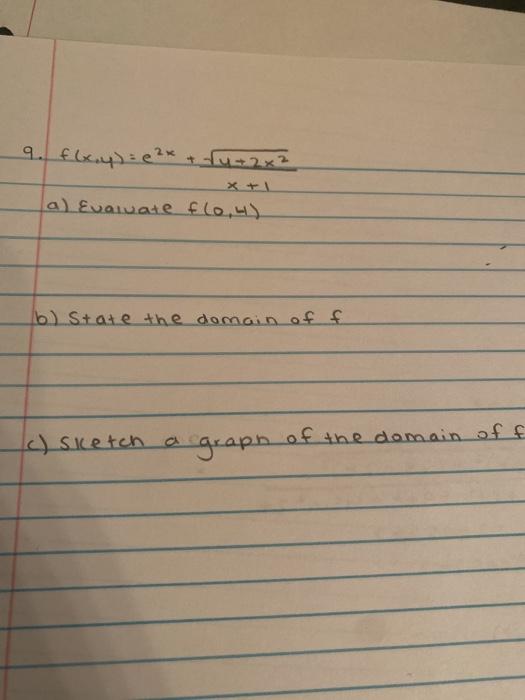 9. f(x,y) = e^2x + √y+2x² / x+1
a) Evaluate f(0,4)
b) State the domain of f
c) Sketch a graph of the domain of f